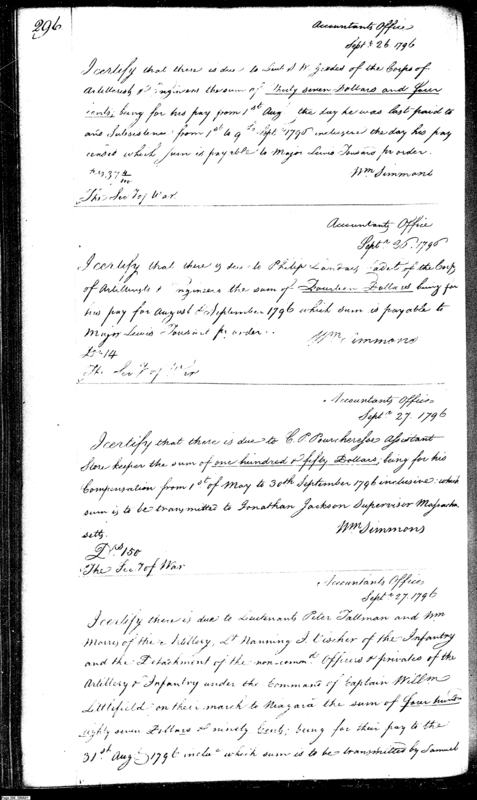 296
Accountants Office
Sept. 26 1796
I certify that there is due to Lieut S W Geddes of the Corps of
Artillerists & Engineers the sum of Thirty seven Dollars and four
cents; being for his pay from 1st Aug the day he was last paid to
and Subsistence from 1st to 9th Sept. 1796 inclusive the day his pay
ceased which sum is payable to Major Lewis Tousard pr order.
Wm Simmons
The Secy of War
Accountants Office
Sept. 26. 1796
I certify that there is due to Philip Landais Cadet of the Corps
of Artillerists & Engineers the sum of Fourteen Dollars being for
his pay for August & September 1796 which sum is payable to
Major Lewis Tousard pr order.
Wm Simmons
14
The Secy of War
Accountants Office
Sept. 27. 1796
I certify that there is due to C. P. Assistant
Store keeper the sum of one hundred & fifty Dollars, being for his
Compensation from 1st of May to 30th September 1796 inclusive: which
sum is to be transmitted to Jonathan Jackson Supervisor Massachu
setts.
Wm Simmons
Drs 150
The Secy of War
Accountants Office
Sept. 27. 1796
I certify there is due to Lieutenants Peter Tallman and Wm
Morris of the Artillery, Lt Nanning J Visscher of the Infantry
and the Detachment of the non-commd. Officers & privates of the
Artillery & Infantry under the Command of Captain Willm
Littlefield on their march to Niagara the sum of four hundred
eighty seven Dollars & ninety Cents; being for their pay to the
31st Aug 1796 inclu. which sum is to be transmitted by Samuel